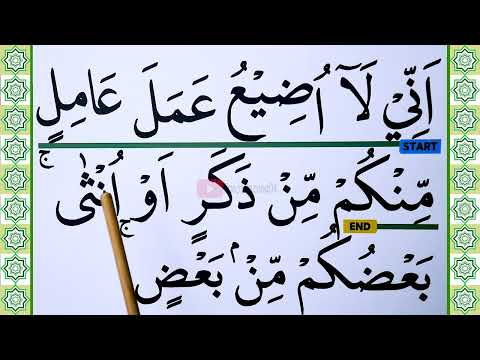 اَنِّيْ لَآ اُضِيْعُ عَمَلَ عَامِلٍ
START
مِّنْكُمْ مِّنْ ذَكَرٍ اَوْ اُنْثٰى ۚ
END
بَعْضُكُمْ مِّنْۢ بَعْضٍ ۚ